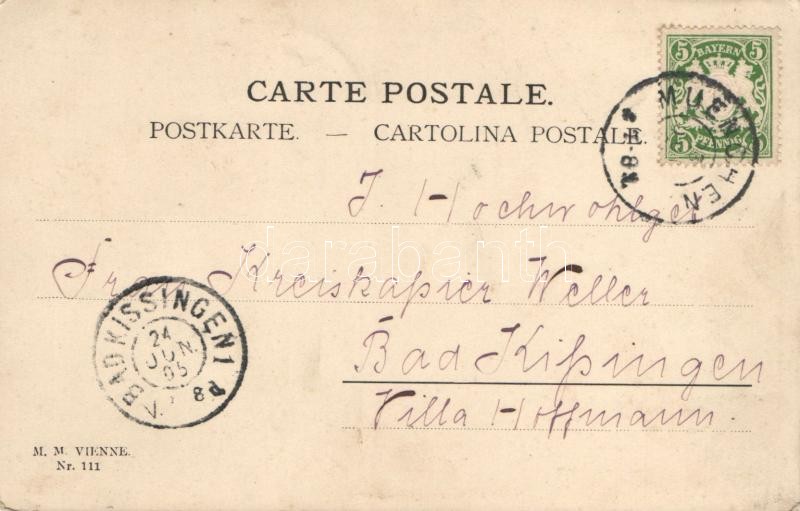 5 BAYERN 5
5 PFENNIG 5
MUENCHEN
CARTE POSTALE.
POSTKARTE. — CARTOLINA POSTALE.
I. Hochwohlgeb
Frau Kreiskaßier Weller
Bad Kißingen
Villa Hoffmann.
BAD KISSINGEN 1
24
JUN.
05
V. 8
darabanth
M. M. VIENNE.
Nr. 111